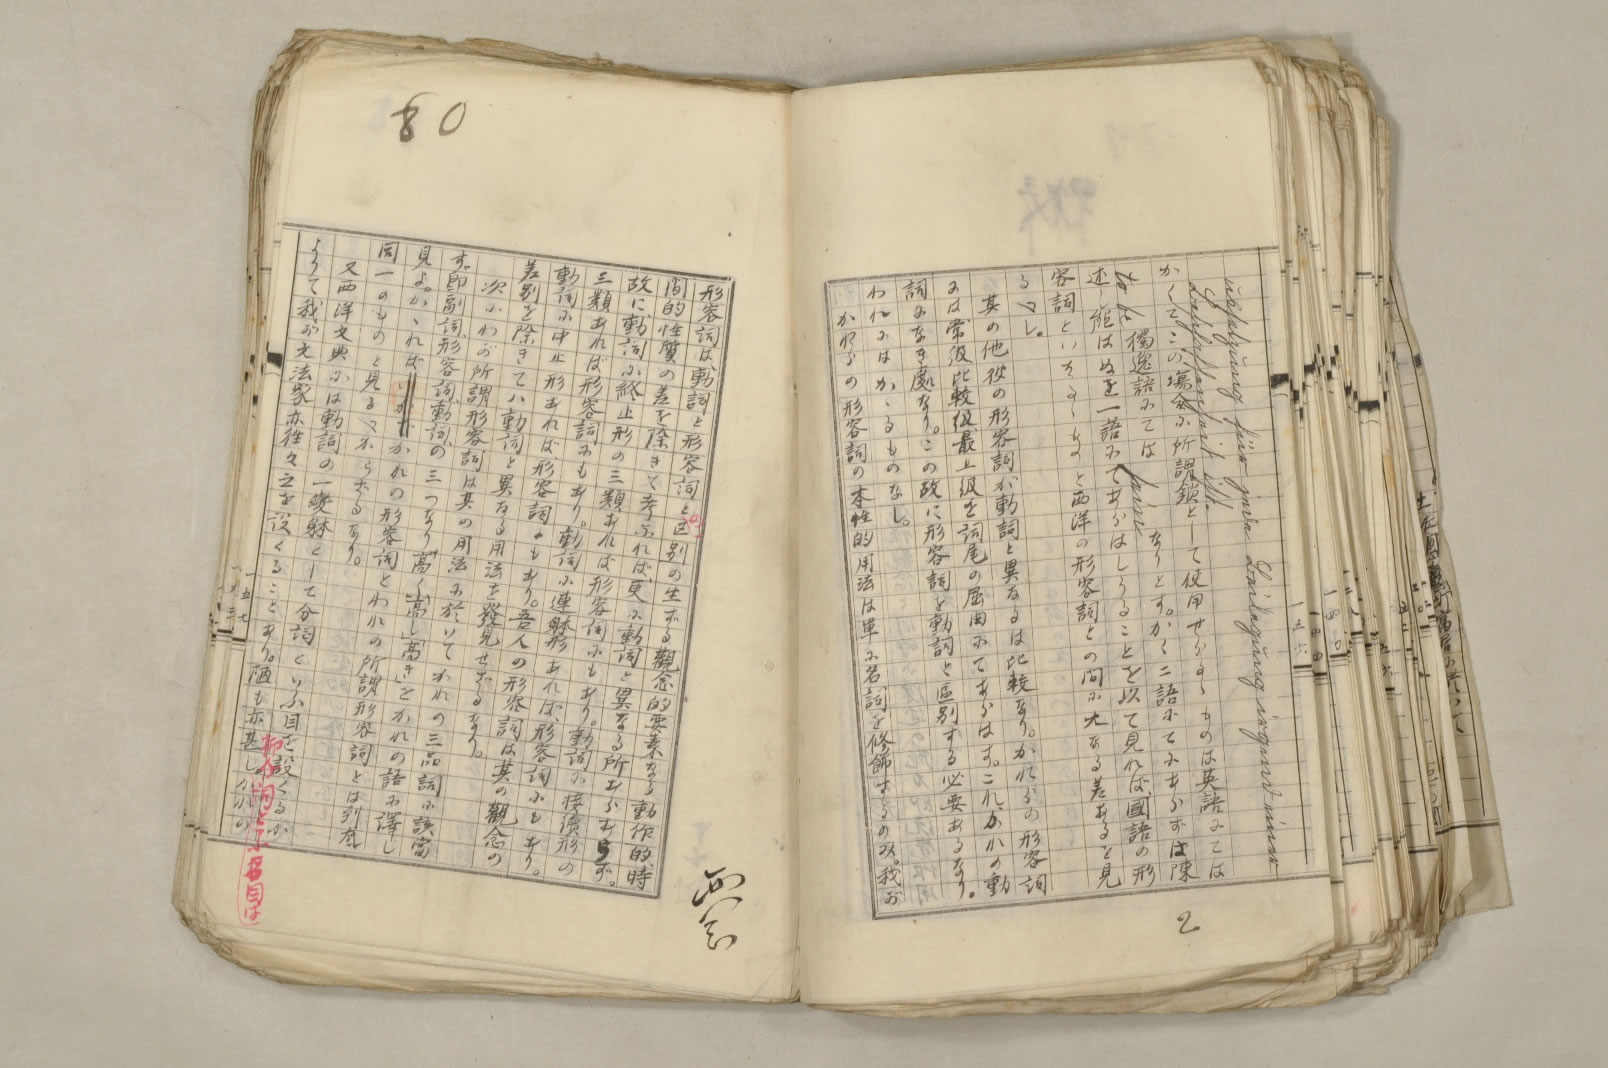 かくてこの場合に所謂鎖として使用せらるゝものは英語にては
獨逸語にては sein なりとす。かく二語にてにあらずば陳
述し能はぬを一語にてあらはしうることを以て見れば、國語の形
容詞といふものと西洋の形容詞との間に大なる差あるを見
るべし。
其の他彼の形容詞が動詞と異なるは比較なり。かれらの形容詞
には常級比較級最上級を詞尾の屈曲にてあらはす。これ、かれの動
詞になき處なり。この故に形容詞を動詞と區別する必要あるなり。
われにはかゝるものなし。
かれらの形容詞の本性的用法は單に名詞を修飾するのみ。我が
一五六
2
80
形容詞は動詞と形容詞と區別の生ずる觀念的要素なる動作的、時
間的性質の差を除きて考ふれば、更に動詞と異なる所あらあらず。
故に動詞に終止形の三類あれば形容詞にもあり。動詞に接續形の
三類あれば形容詞にもあり。動詞に連躰形あれば、形容詞にもあり。
動詞に中止形あれば形容詞にもあり。吾人の形容詞は其の觀念の
差別を除きては動詞と異なる用法を發見せざるなり。
次にわが所謂形容詞は其の用法に於いてかれの三品詞に該當
す。即副詞、形容詞、動詞の三つなり。「高く」「高し」「高き」をかれの語に譯し
見よ。かゝれば かれの形容詞とわれの所謂形容詞とは到底
同一のものと見るべからざるなり。
又西洋文典には動詞の一變躰として分詞といふ目を設くるが
よりて我が文法家亦往々之を設くることあり。陋も亦甚し。かれの
一五七